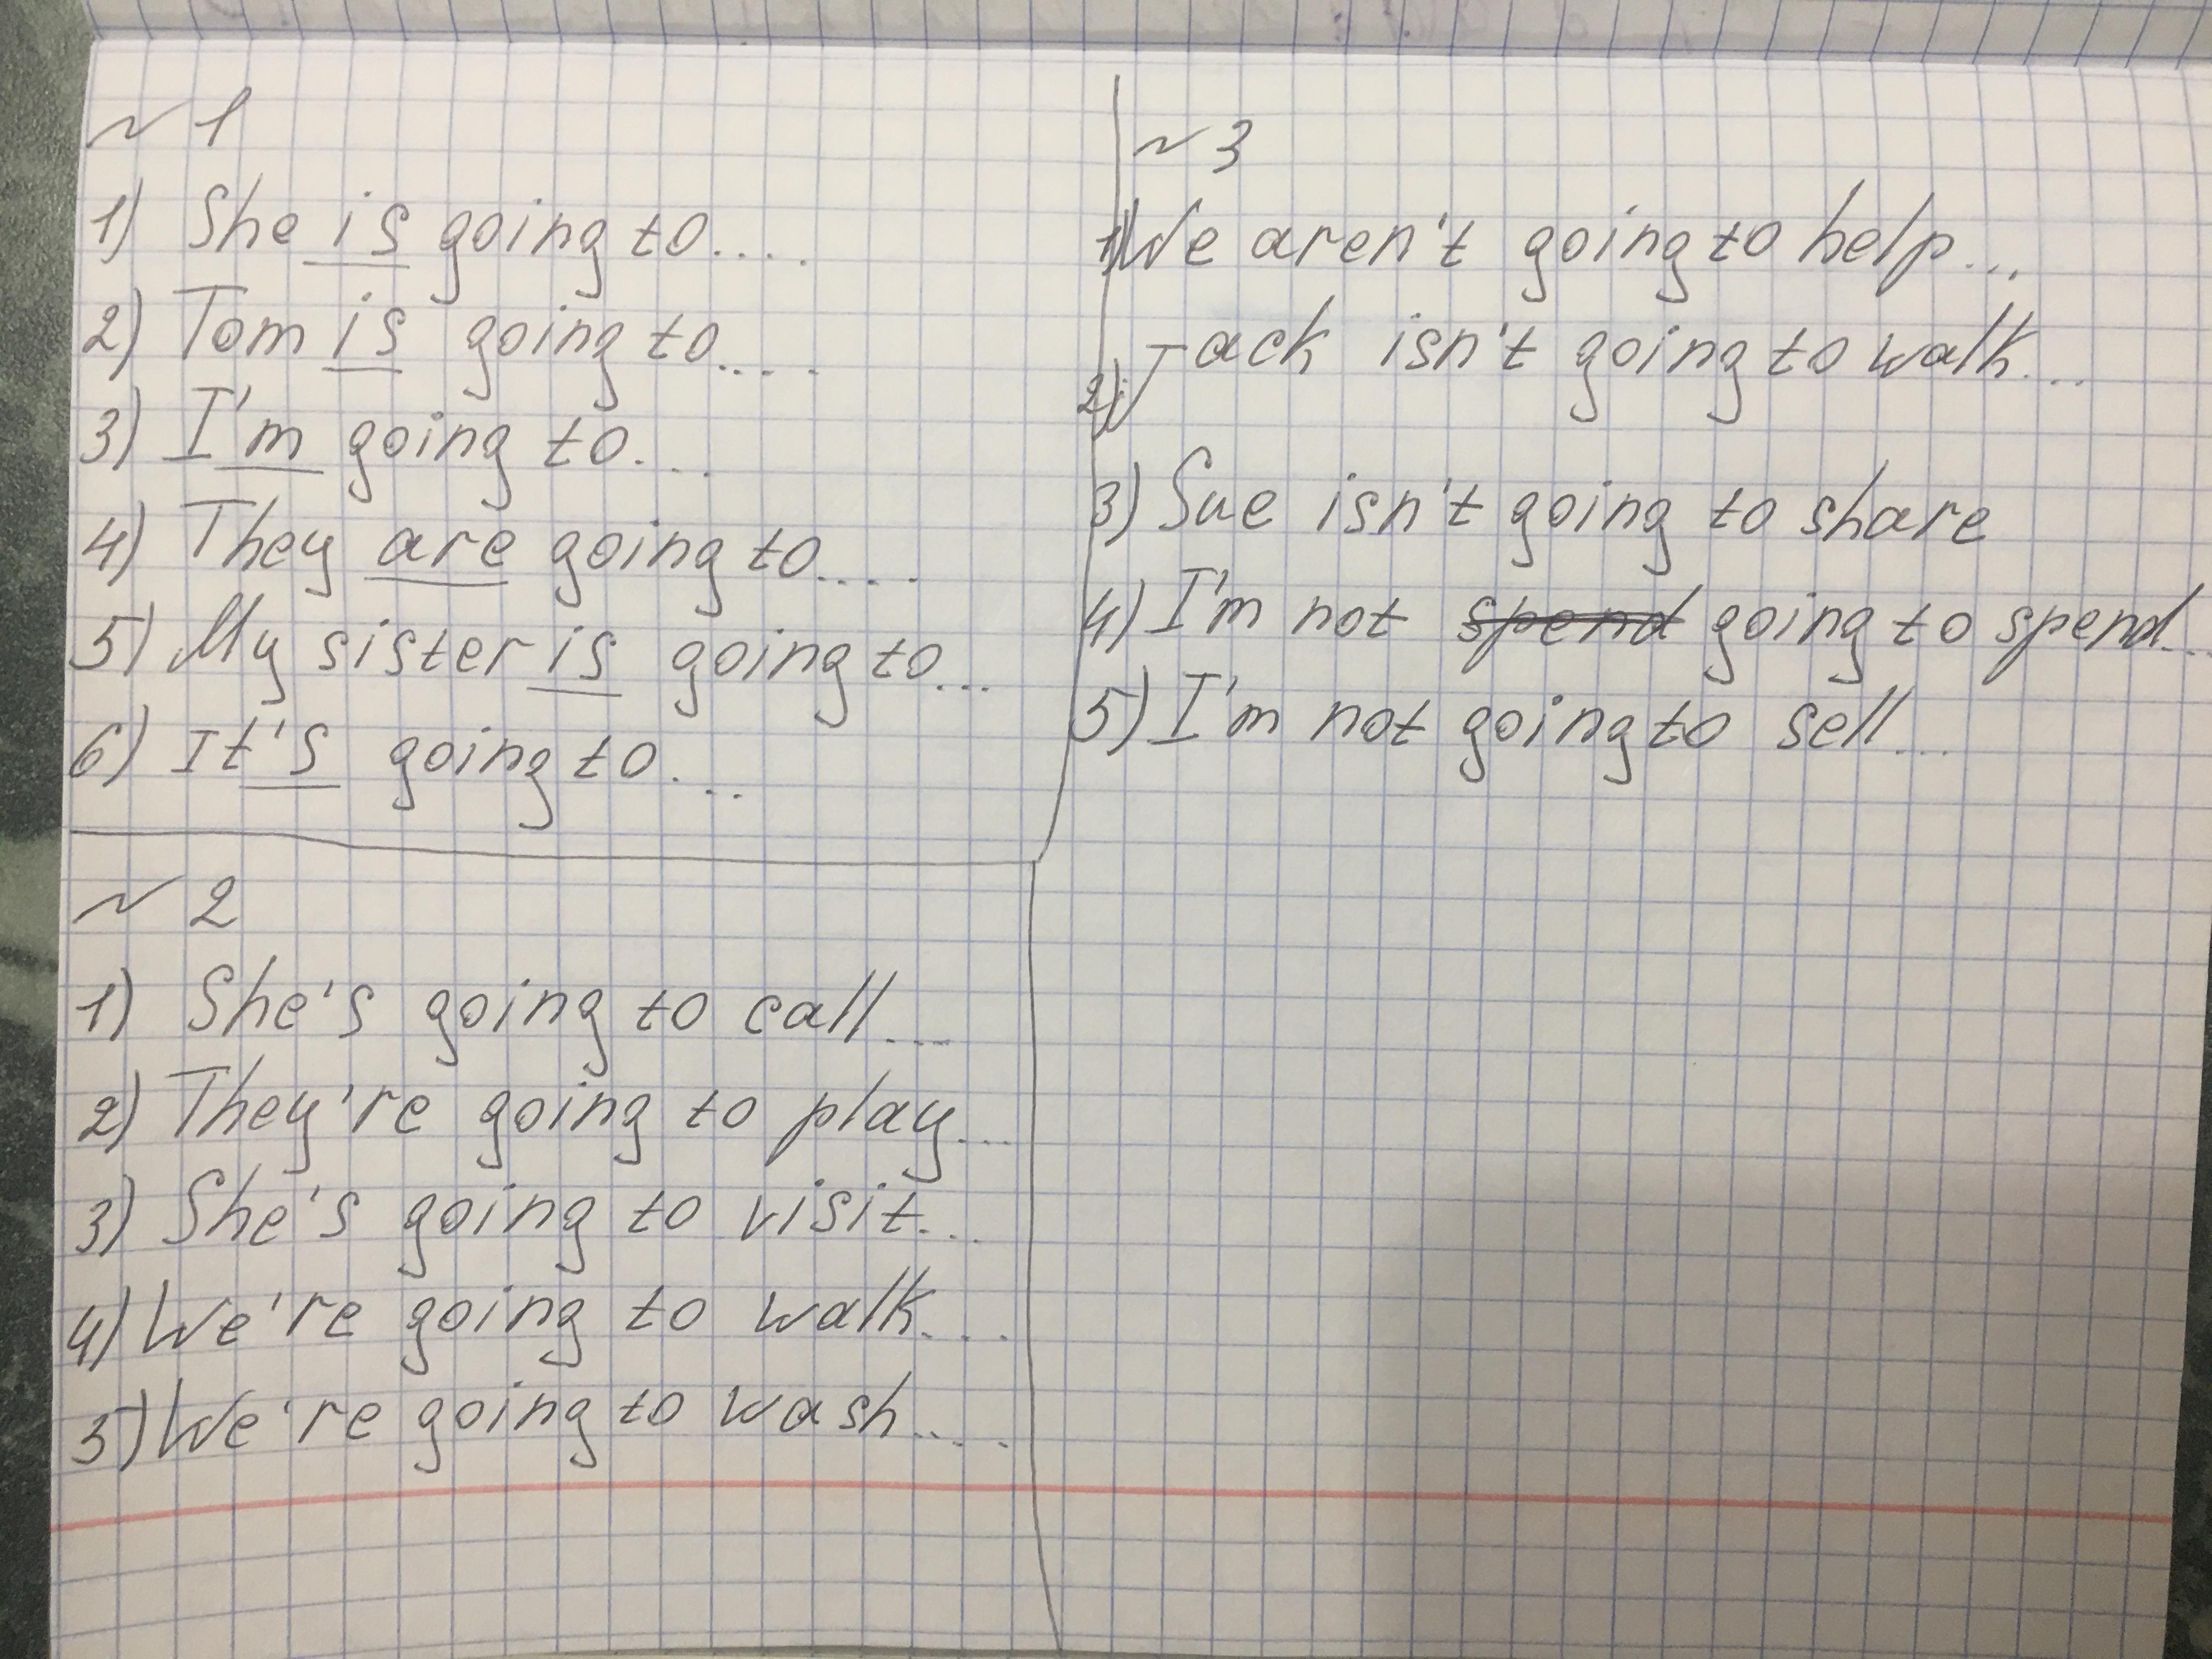 ~ 1
1) She is going to....
2) Tom is going to....
3) I'm going to...
4) They are going to....
5) My sister is going to...
6) It's going to...
~ 2
1) She's going to call...
2) They're going to play...
3) She's going to visit...
4) We're going to walk....
5) We're going to wash....
~ 3
1) We aren't going to help...
2) Jack isn't going to walk...
3) Sue isn't going to share
4) I'm not spend going to spend...
5) I'm not going to sell...